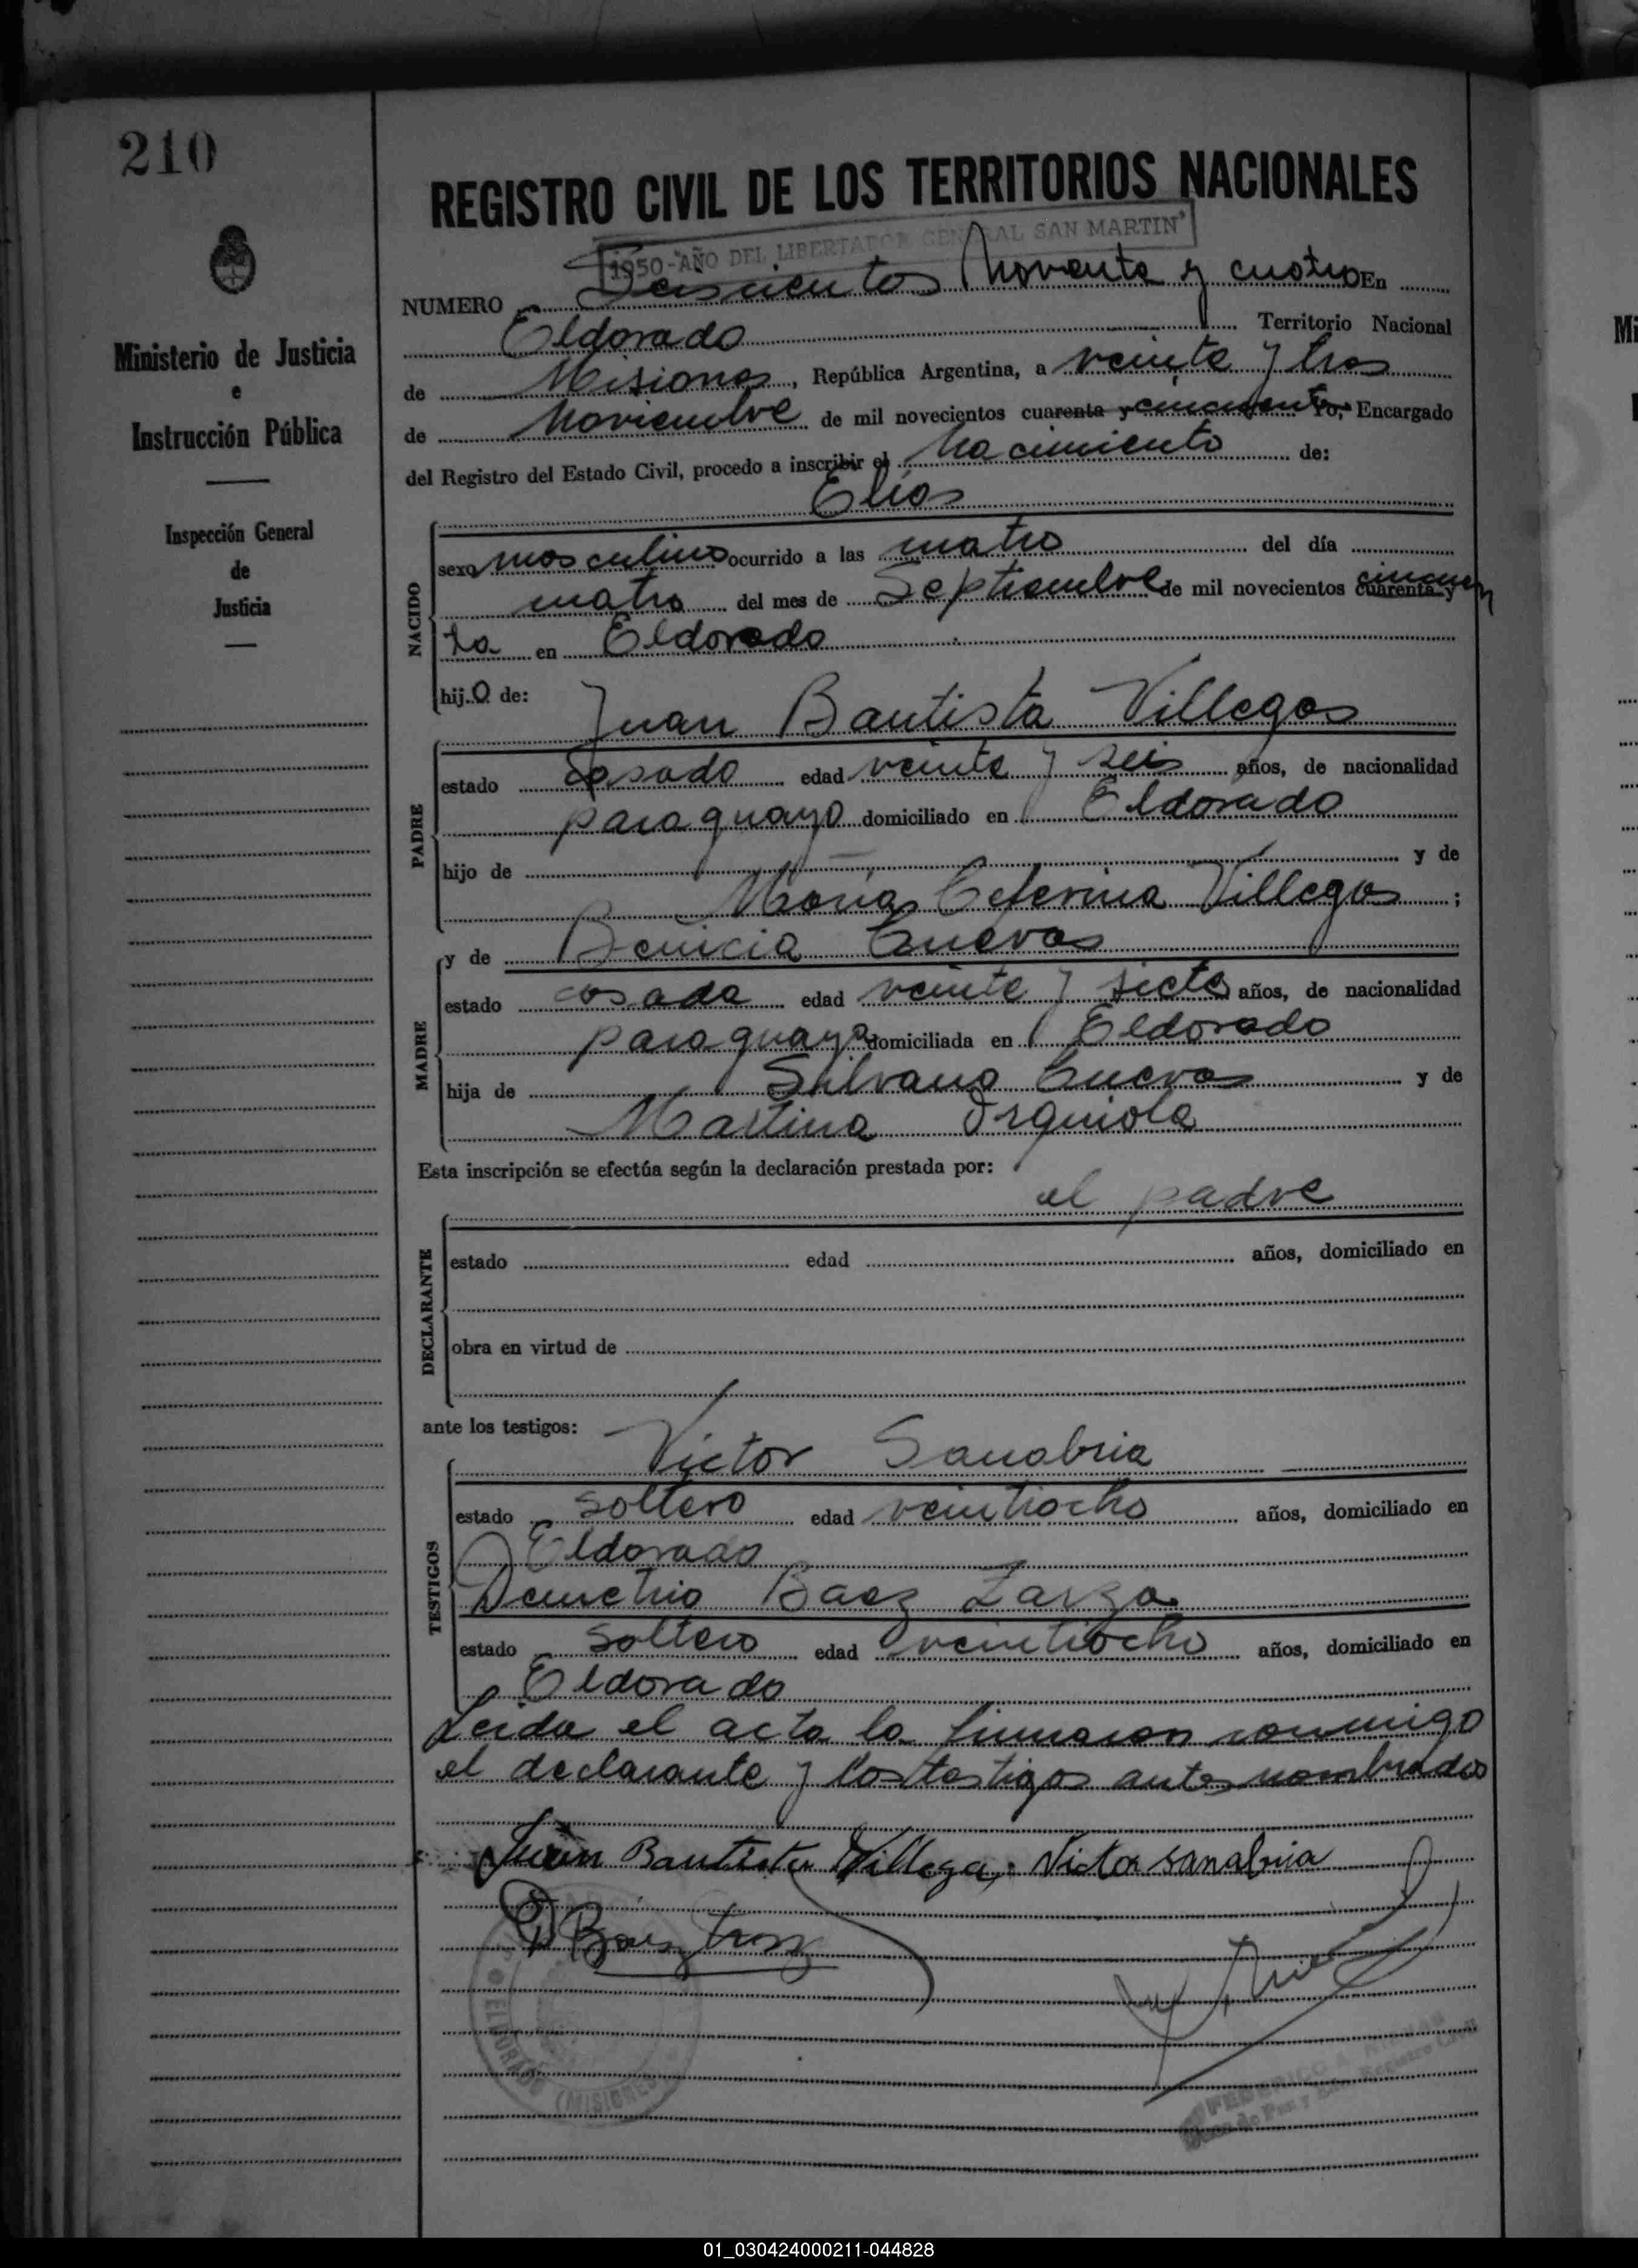 210
Ministerio de Justicia
e
Instrucción Pública
Inspección General
de
Justicia
REGISTRO CIVIL DE LOS TERRITORIOS NACIONALES
1950-"AÑO DEL LIBERTADOR GENERAL SAN MARTIN"
NUMERO Seiscientos Noventa y cuatro En
Eldorado Territorio Nacional
de Misiones, República Argentina, a veinte y tres
de Noviembre de mil novecientos cuarenta y cincuenta Yo, Encargado
del Registro del Estado Civil, procedo a inscribir el Nacimiento de:
Elías
NACIDO
sexo masculino ocurrido a las cuatro del día
cuatro del mes de Septiembre de mil novecientos cuarenta y cincuen
ta en Eldorado
hijo de:
Juan Bautista Villegas
PADRE
estado casado edad veinte y seis años, de nacionalidad
paraguayo domiciliado en Eldorado
hijo de y de
María Ceferina Villegas ;
y de Benicia Cuevas
MADRE
estado casada edad veinte y siete años, de nacionalidad
paraguaya domiciliada en Eldorado
hija de Silvano Cuevas y de
Martina
Esta inscripción se efectúa según la declaración prestada por:
el padre
DECLARANTE
estado edad años, domiciliado en
obra en virtud de
ante los testigos:
Victor Sanabria
TESTIGOS
estado soltero edad veintiocho años, domiciliado en
Eldorado
Demetrio Baez Zarza
estado soltero edad veintiocho años, domiciliado en
Eldorado
Leida el acta la firmaron conmigo
el declarante y los testigos antes nombrados
Juan Bautista Villega. Victor sanabria
D Baez
ELDORADO (MISIONES)
FEDERICO A.
Juez de Paz y Enc. Registro Civil
Mi
01_030424000211-044828